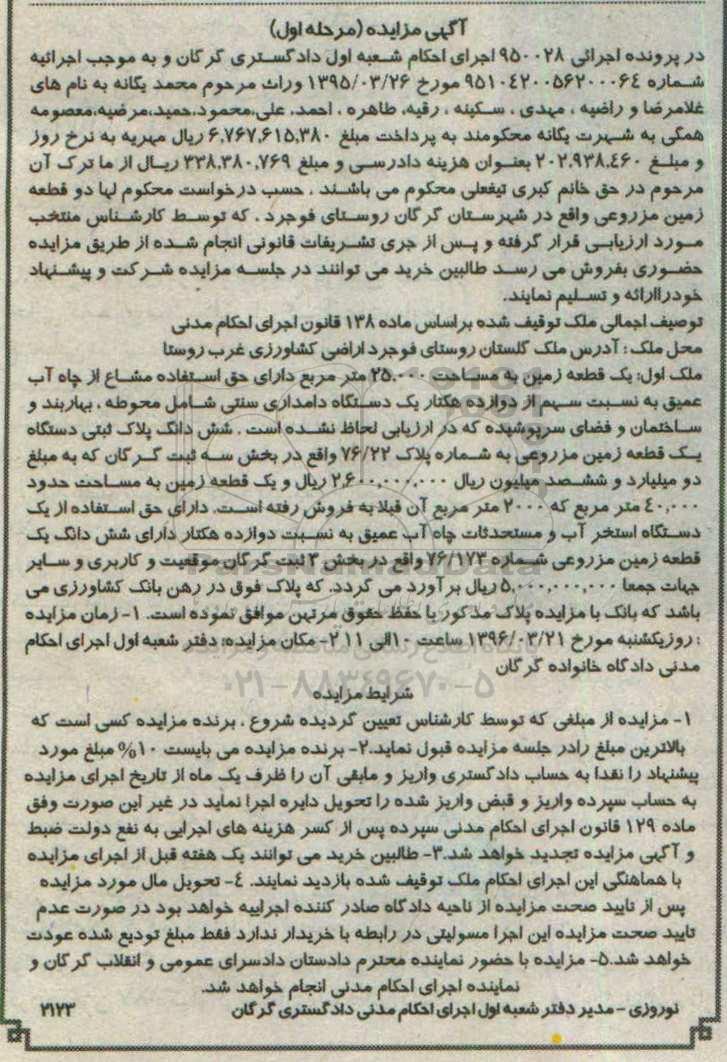 آگهی مزایده (مرحله اول)
در پرونده اجرائی ۹۵۰۰۲۸ اجرای احکام شعبه اول دادگستری گرگان و به موجب اجرائیه
شماره ۹۵۱۰۴۲۰۰۵۶۲۰۰۰۶۴ مورخ ۱۳۹۵/۰۳/۲۶ وراث مرحوم محمد یگانه به نام های
غلامرضا و راضیه ، مهدی ، سکینه ، رقیه، طاهره ، احمد، علی،محمود،حمید،مرضیه،معصومه
همگی به شهرت یگانه محکومند به پرداخت مبلغ ۶,۷۶۷,۶۱۵,۳۸۰ ریال مهریه به نرخ روز
و مبلغ ۲۰۲,۹۳۸,۴۶۰ بعنوان هزینه دادرسی و مبلغ ۳۳۸,۳۸۰,۷۶۹ ریال از ما ترک آن
مرحوم در حق خانم کبری تیفعلی محکوم می باشند ، حسب درخواست محکوم لها دو قطعه
زمین مزروعی واقع در شهرستان گرگان روستای فوجرد ، که توسط کارشناس منتخب
مورد ارزیابی قرار گرفته و پس از جری تشریفات قانونی انجام شده از طریق مزایده
حضوری بفروش می رسد طالبین خرید می توانند در جلسه مزایده شرکت و پیشنهاد
خودراارائه و تسلیم نمایند.
توصیف اجمالی ملک توقیف شده براساس ماده ۱۳۸ قانون اجرای احکام مدنی
محل ملک : آدرس ملک گلستان روستای فوجرد اراضی کشاورزی غرب روستا
ملک اول: یک قطعه زمین به مساحت ۲۵,۰۰۰ متر مربع دارای حق استفاده مشاع از چاه آب
عمیق به نسبت سهم از دوازده هکتار یک دستگاه دامداری سنتی شامل محوطه ، بهاربند و
ساختمان و فضای سرپوشیده که در ارزیابی لحاظ نشده است . شش دانگ پلاک ثبتی دستگاه
یک قطعه زمین مزروعی به شماره پلاک ۷۶/۲۲ واقع در بخش سه ثبت گرگان که به مبلغ
دو میلیارد و ششصد میلیون ریال ۲,۶۰۰,۰۰۰,۰۰۰ ریال و یک قطعه زمین به مساحت حدود
۴۰,۰۰۰ متر مربع که ۲۰۰۰ متر مربع آن قبلا به فروش رفته است. دارای حق استفاده از یک
دستگاه استخر آب و مستحدثات چاه آب عمیق به نسبت دوازده هکتار دارای شش دانگ یک
قطعه زمین مزروعی شماره ۷۶/۱۷۳ واقع در بخش ۳ ثبت گرگان موقعیت و کاربری و سایر
جهات جمعا ۵,۰۰۰,۰۰۰,۰۰۰ ریال برآورد می گردد. که پلاک فوق در رهن بانک کشاورزی می
باشد که بانک با مزایده پلاک مذکور با حفظ حقوق مرتهن موافق نموده است. ۱- زمان مزایده
: روزیکشنبه مورخ ۱۳۹۶/۰۳/۲۱ ساعت ۱۰الی ۱۱ ۲- مکان مزایده: دفتر شعبه اول اجرای احکام
مدنی دادگاه خانواده گرگان
۰۲۱-۸۸۳۴۹۶۷۰-۵
شرایط مزایده
۱- مزایده از مبلغی که توسط کارشناس تعیین گردیده شروع ، برنده مزایده کسی است که
بالاترین مبلغ رادر جلسه مزایده قبول نماید.۲- برنده مزایده می بایست ۱۰% مبلغ مورد
پیشنهاد را نقدا به حساب دادگستری واریز و مابقی آن را ظرف یک ماه از تاریخ اجرای مزایده
به حساب سپرده واریز و قبض واریز شده را تحویل دایره اجرا نماید در غیر این صورت وفق
ماده ۱۲۹ قانون اجرای احکام مدنی سپرده پس از کسر هزینه های اجرایی به نفع دولت ضبط
و آگهی مزایده تجدید خواهد شد.۳- طالبین خرید می توانند یک هفته قبل از اجرای مزایده
با هماهنگی این اجرای احکام ملک توقیف شده بازدید نمایند. ۴- تحویل مال مورد مزایده
پس از تایید صحت مزایده از ناحیه دادگاه صادر کننده اجراییه خواهد بود در صورت عدم
تایید صحت مزایده این اجرا مسولیتی در رابطه با خریدار ندارد فقط مبلغ تودیع شده عودت
خواهد شد.۵- مزایده با حضور نماینده محترم دادستان دادسرای عمومی و انقلاب گرگان و
نماینده اجرای احکام مدنی انجام خواهد شد.
نوروزی - مدیر دفتر شعبه اول اجرای احکام مدنی دادگستری گرگان ۲۱۲۳